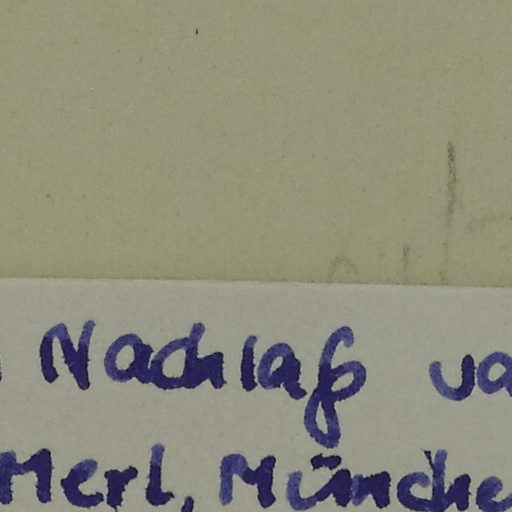 Nachlaß va
Merl, Münche